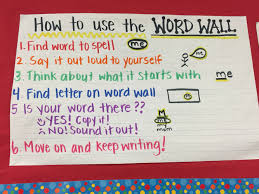 How to use the WORD WALL
1. Find word to spell me
2. Say it out loud to yourself
3. Think about what it starts with me
4 Find letter on word wall
5 Is your word there??
YES! Copy it!
NO! Sound it out!
me
mom
6. Move on and keep writing!